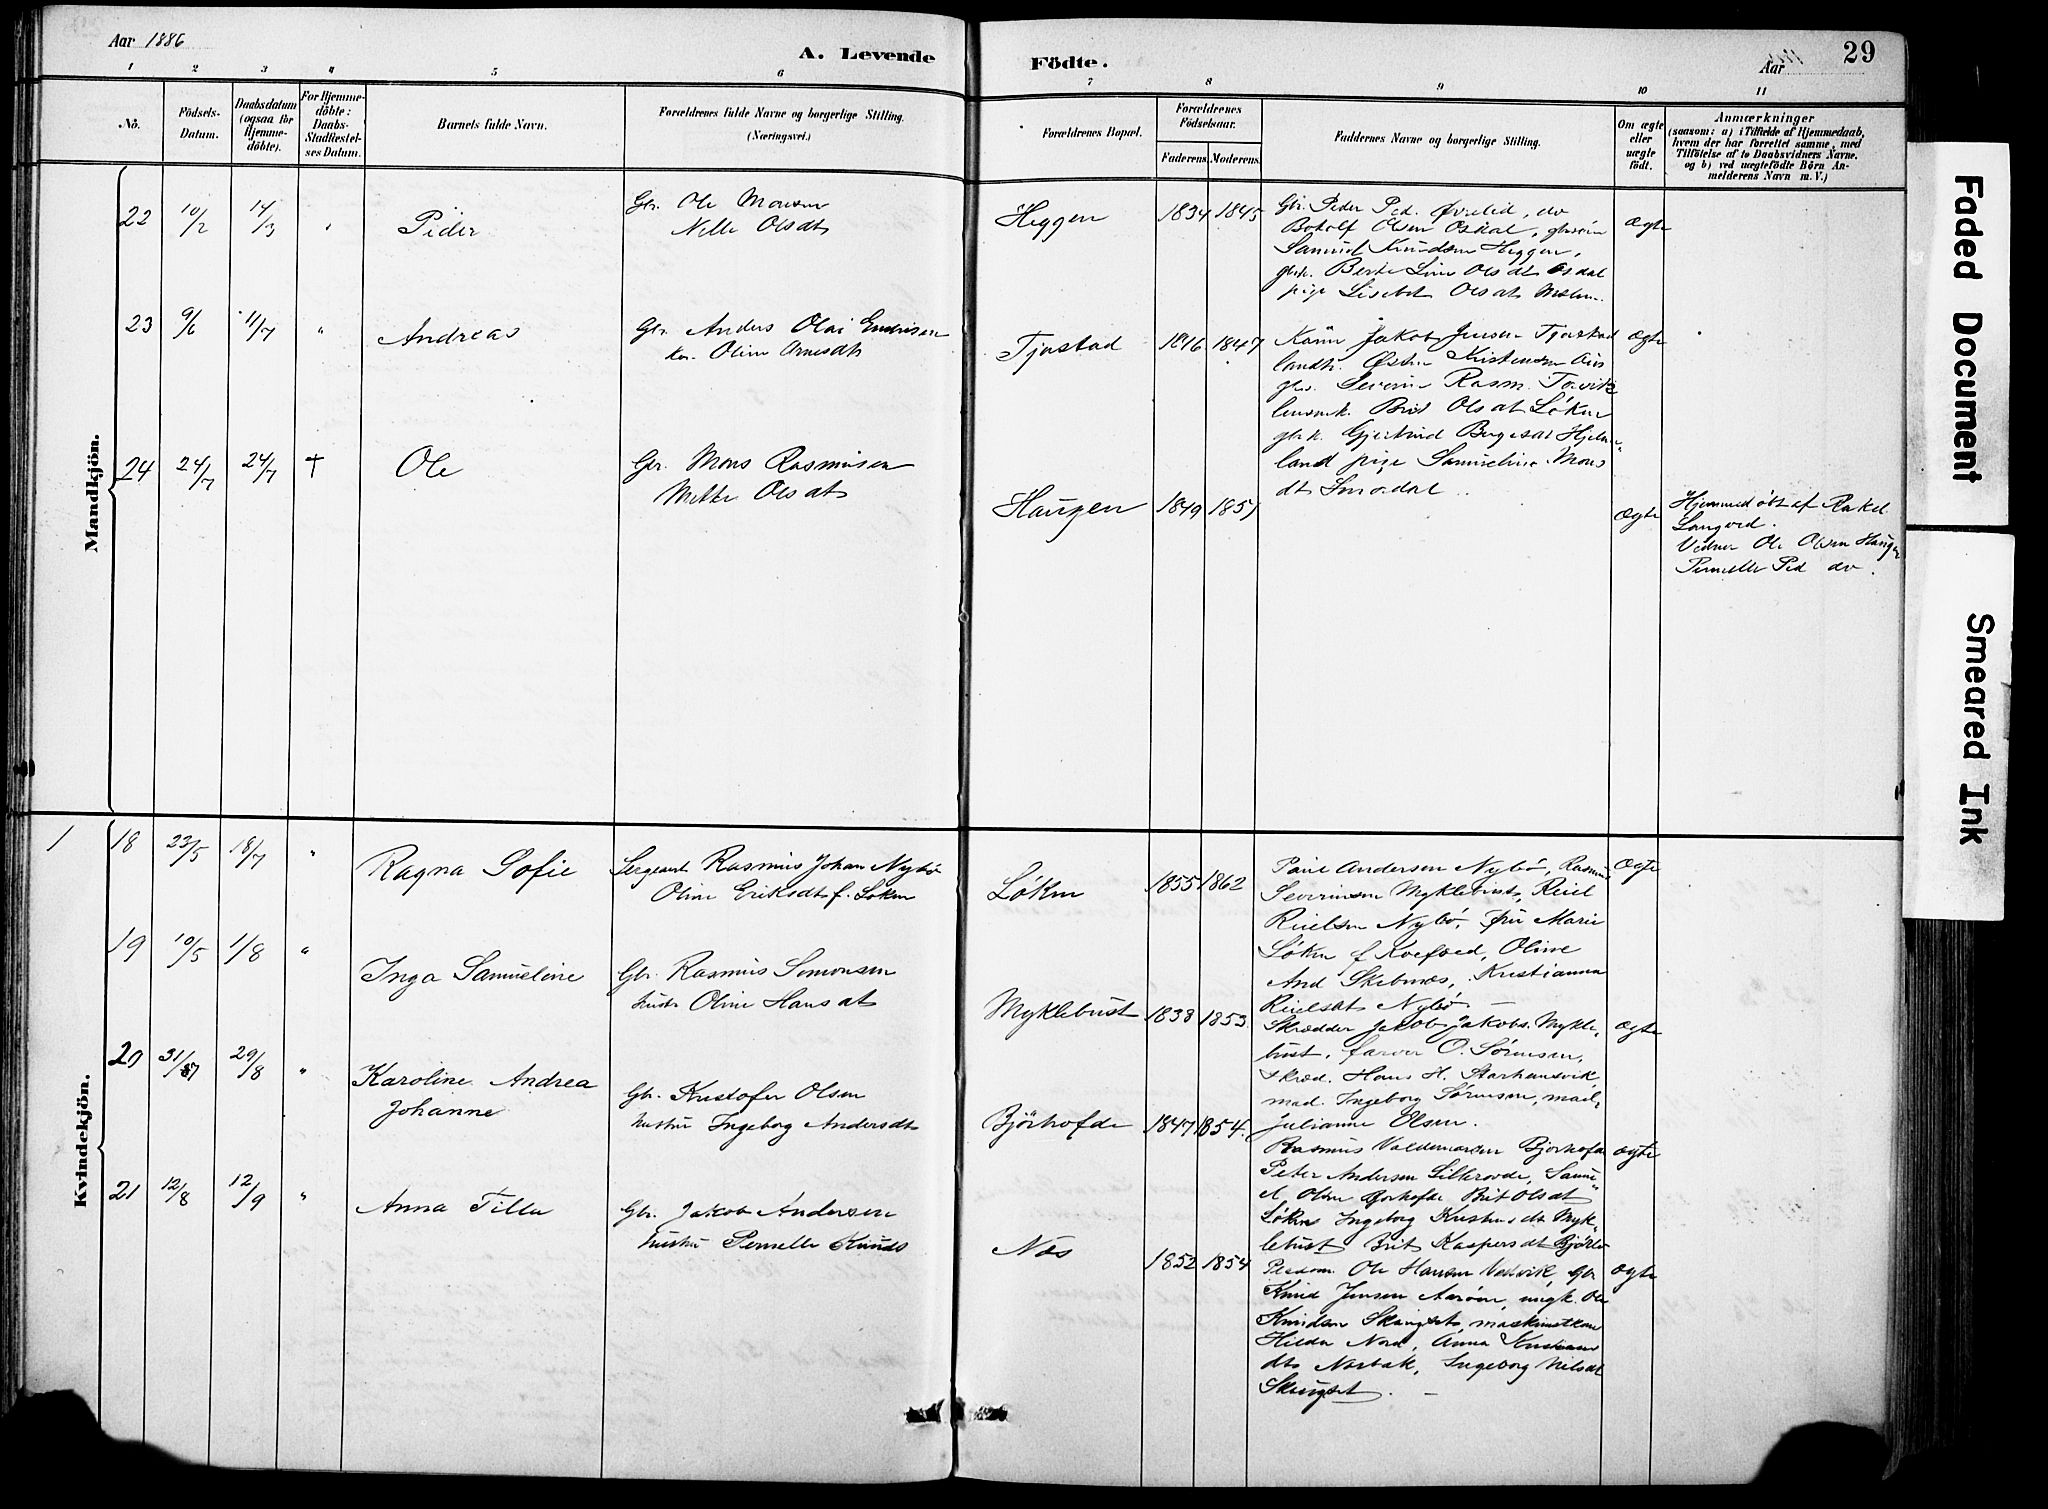 Aar 1886
A. Levende Födte.
Aar
29
1 2 3 4 5 6 7 8 9 10 11
No.
Födsels-Datum.
Daabsdatum (ogsaa for Hjemme-döbte).
For Hjemme-döbte: Daabs-Stadfæstel-ses Datum.
Barnets fulde Navn.
Forældrenes fulde Navne og borgerlige Stilling.
(Næringsvei.)
Forældrenes Bopæl.
Forældrenes Födselsaar.
Faderens. Moderens.
Faddernes Navne og borgerlige Stilling.
Om ægte eller uægte födt.
Anmærkninger
(saasom: a) i Tilfælde af Hjemmedaab,
hvem der har forrettet samme, med
Tilföielse af to Daabsvidners Navne.
og b) ved uægtefödte Börn An-
melderens Navn m. V.)
Mandkjön.
22 10/2 14/3 " Peder
Gbr. Ole Monsen
Nille Olsdt
Heggen 1834 1845
Gbr. Peder Ped. Øvrelid, do
Botolf Olsen Osdal,
Samuel Knudsen Heggen,
gbrk. Berte Line Olsdt Osdal
pige Lisebet Olsdt
Ægte
23 9/6 11/7 " Andreas
Gbr. Anders Olai
Kr. Oline Arnesdt
Tjostad 1846 1847
Jakob Jensen Tjostad
landh. Østen Kristensen
gbr. Severin Rasm. Torvik
Brit Olsdt Løken
gbrk. Gjertrud Hjelm-
land pige Samueline Mons
dt Smordal
Ægte
24 24/7 24/7 † Ole
Gbr. Mons Rasmusen
Mette Olsdt
Haugen 1849 1851
Ægte
Hjemmedöbt af Rakel
Langved.
Vidner Ole Olsen Haugen
Pernelle Ped do.
Kvindekjön.
1
18 23/5 18/7 " Ragna Sofie
Sergeant Rasmus Johan Nybö
Oline Eriksdt f. Løken
Løken 1855 1862
Paul Andersen Nybö, Rasmus
Severinsen Myklebust, Riiel
Riielsen Nybö, fru Marie
Løken f Koefoed, Oline
And Skibenes, Kristianna
Riielsdt Nybö
Ægte
19 10/5 1/8 " Inga Samueline
Gbr. Rasmus Simonsen
hustr Oline Hansdt
Myklebust 1838 1853.
Skrædder Jakob Jakobs. Mykle-
bust, farver O. Sörensen,
skræd. Hans H. Starheimsvik
mad. Ingeborg Sörensen, mad.
Julianne Olsen.
Ægte
20 31/7 29/8 " Karoline Andrea
Johanne
Gbr. Kristofer Olsen
hustru Ingeborg Andersdt
Björhofde 1847 1854.
Rasmus Valdemarsen Björhofde
Peter Andersen Silkrovde, Samu-
el Olsen Björhofde Brit Olsdt
Løken Ingeborg Kristensdt Myk-
lebust Brit Kaspersdt
ægte
21 12/8 12/9 " Anna Tilla
Gbr. Jakob Andersen
hustru Pernelle Knuds
Nes 1852 1854
Ole Hansen Vedvik, Gbr
Knud Jensen Aaröen, ungk. Ole
Knudsen Skaugset, maskinistkone
Hilda Nord, Anna Kristian
dt Norbak, Ingeborg Nilsdt
Skaugset.
ægte
Faded Document
Smeared Ink